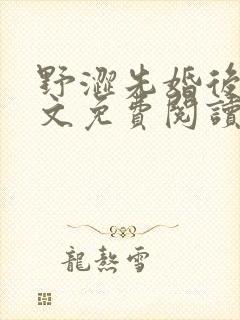 野澀先婚後
文免費閱讀
龍熱雪